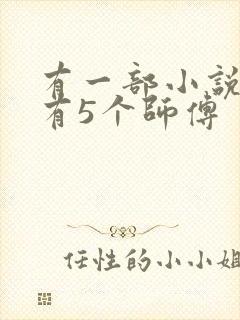 有一部小说
有5个师傅
任性的小小姐